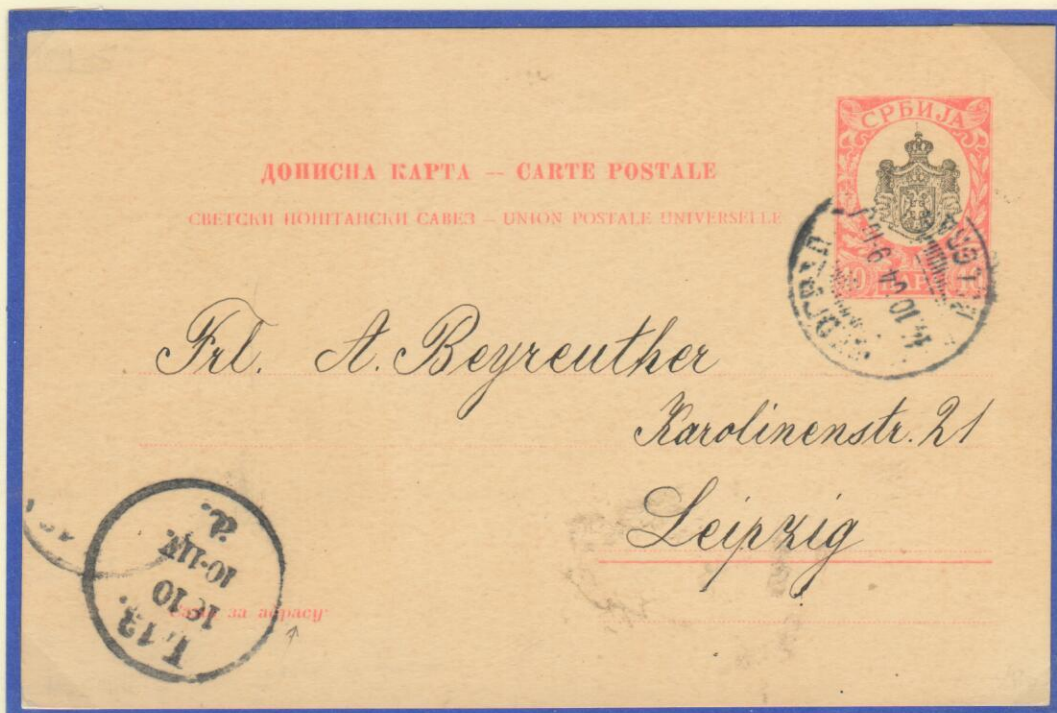 СРБИЈА
ДОПИСНА КАРТА — CARTE POSTALE
СВЕТСКИ ПОШТАНСКИ САВЕЗ — UNION POSTALE UNIVERSELLE
10 ПАРА 10
14 10 04 9-10
Frl. A. Beyreuther
Karolinenstr. 21
Leipzig
L. 13.
16 10
10-11V.
за адресу